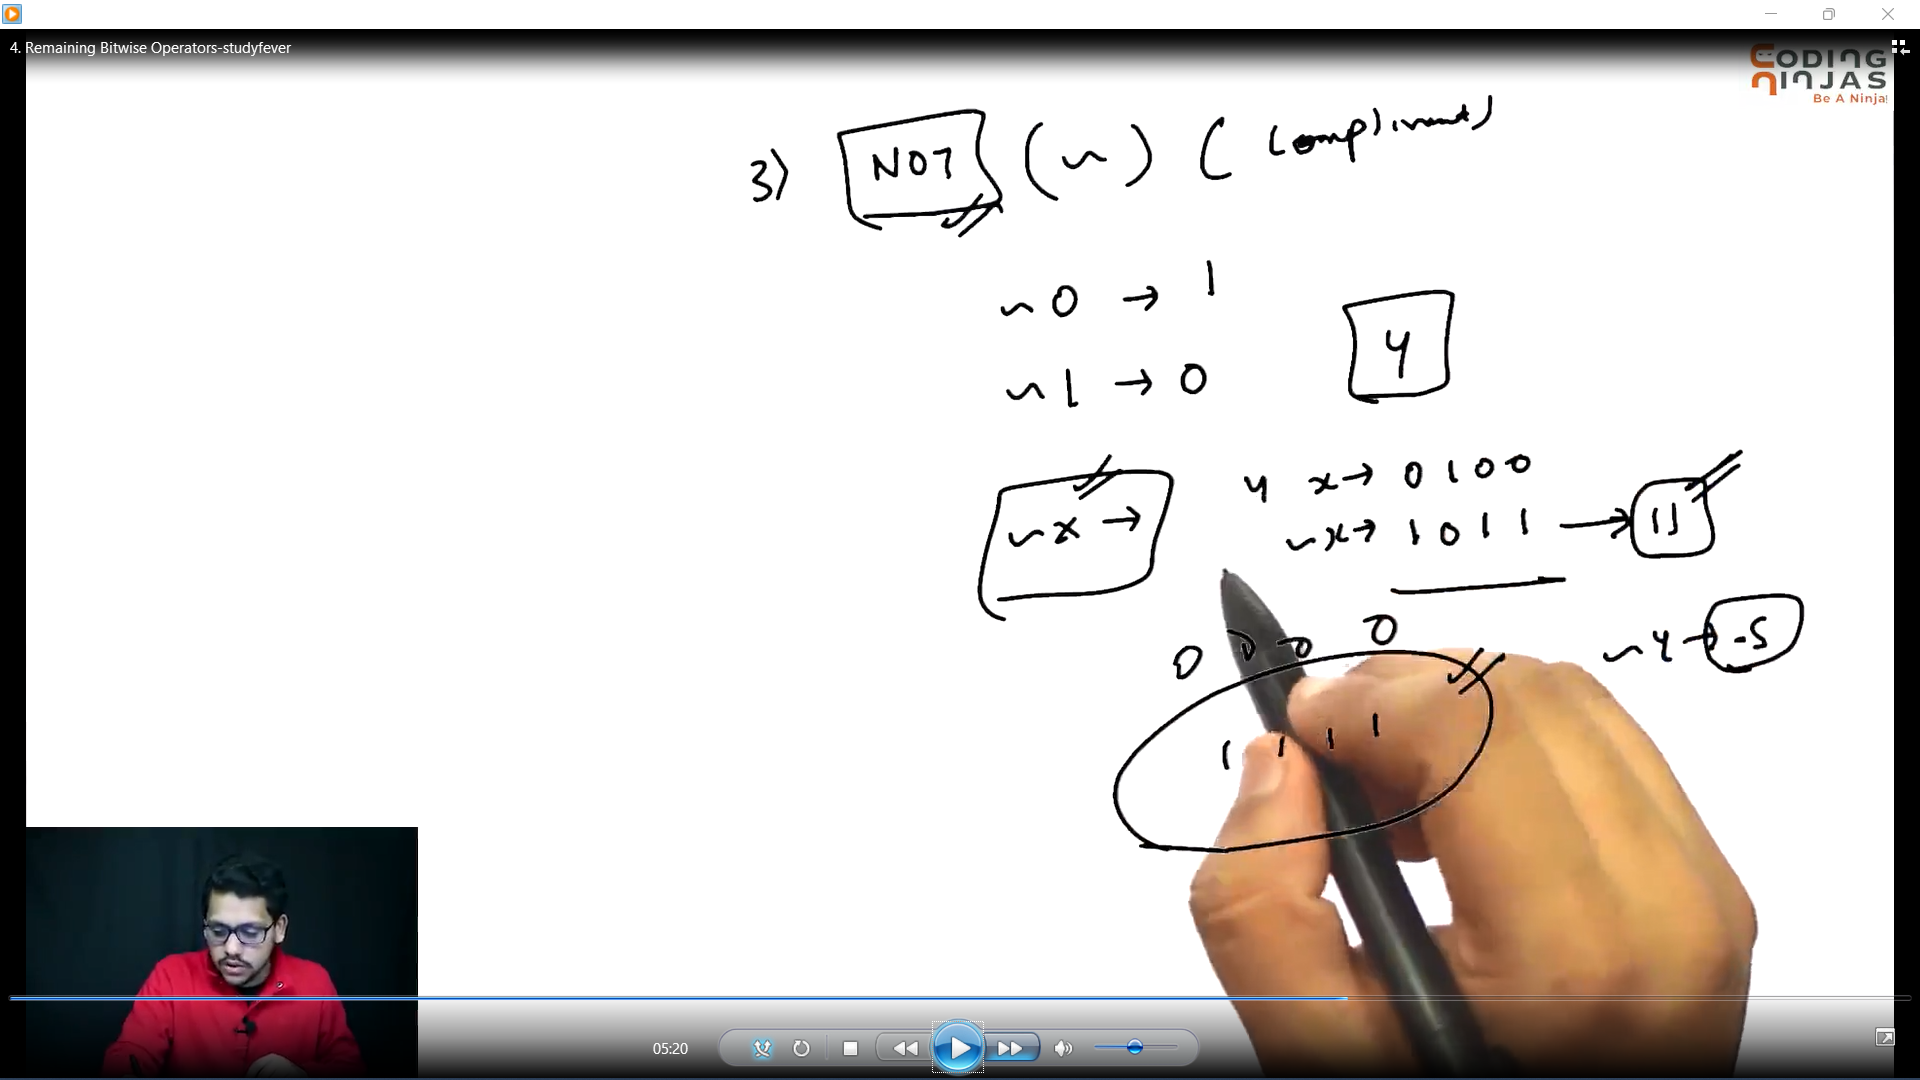 4. Remaining Bitwise Operators-studyfever
CODING
NINJAS
Be A Ninja
3) NOT (~) (
~0 → 1
~1 → 0
4
~x →
4 x → 0100
~x → 1011 → 11
0 0 0 0
~4 → -5
1 1 1 1
05:20